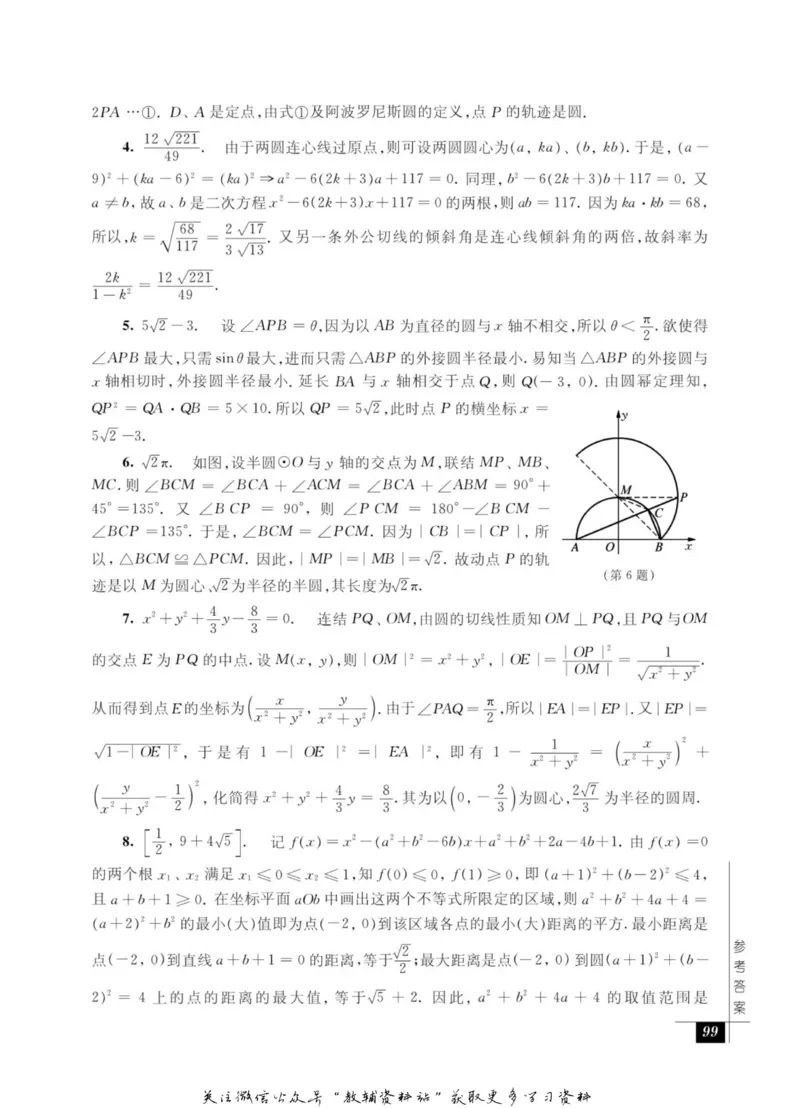 2PA …①. D、A 是定点,由式①及阿波罗尼斯圆的定义,点 P 的轨迹是圆.
4. 12√221/49. 由于两圆连心线过原点,则可设两圆圆心为(a, ka)、(b, kb). 于是, (a－
9)²＋(ka－6)²＝(ka)²⇒a²－6(2k＋3)a＋117＝0. 同理, b²－6(2k＋3)b＋117＝0. 又
a≠b, 故 a、b 是二次方程 x²－6(2k＋3)x＋117＝0 的两根, 则 ab＝117. 因为 ka・kb＝68,
所以, k＝√(68/117)＝2√17/3√13. 又另一条外公切线的倾斜角是连心线倾斜角的两倍,故斜率为
2k/(1－k²)＝12√221/49.
5. 5√2－3. 设 ∠APB＝θ,因为以 AB 为直径的圆与 x 轴不相交,所以 θ＜π/2. 欲使得
∠APB 最大,只需 sinθ 最大,进而只需△ABP 的外接圆半径最小. 易知当△ABP 的外接圆与
x 轴相切时,外接圆半径最小. 延长 BA 与 x 轴相交于点 Q, 则 Q(－3, 0). 由圆幂定理知,
QP²＝QA・QB＝5×10. 所以 QP＝5√2,此时点 P 的横坐标 x＝
5√2－3.
6. √2π. 如图,设半圆⊙O 与 y 轴的交点为 M,联结 MP、MB、
MC. 则 ∠BCM＝∠BCA＋∠ACM＝∠BCA＋∠ABM＝90°＋
45°＝135°. 又 ∠BCP＝90°, 则 ∠PCM＝180°－∠BCM－
∠BCP＝135°. 于是, ∠BCM＝∠PCM. 因为 |CB|＝|CP|, 所
以, △BCM≌△PCM. 因此, |MP|＝|MB|＝√2. 故动点 P 的轨
迹是以 M 为圆心、√2为半径的半圆,其长度为√2π.
y
M
P
C
A
O
B
x
(第 6 题)
7. x²＋y²＋4/3y－8/3＝0. 连结 PQ、OM,由圆的切线性质知 OM⊥PQ,且 PQ 与 OM
的交点 E 为 PQ 的中点. 设 M(x, y),则 |OM|²＝x²＋y², |OE|＝|OP|²/|OM|＝1/√(x²＋y²).
从而得到点E的坐标为(x/(x²＋y²), y/(x²＋y²)). 由于∠PAQ＝π/2,所以|EA|＝|EP|. 又|EP|＝
√(1－|OE|²), 于是有 1－|OE|²＝|EA|², 即有 1－1/(x²＋y²)＝(x/(x²＋y²))²＋
(y/(x²＋y²)－1/2)², 化简得 x²＋y²＋4/3y＝8/3. 其为以(0, －2/3)为圆心, 2√7/3 为半径的圆周.
8. [1/2, 9＋4√5]. 记 f(x)＝x²－(a²＋b²－6b)x＋a²＋b²＋2a－4b＋1. 由 f(x)＝0
的两个根 x₁、x₂ 满足 x₁≤0≤x₂≤1,知 f(0)≤0, f(1)≥0, 即 (a＋1)²＋(b－2)²≤4,
且 a＋b＋1≥0. 在坐标平面 aOb 中画出这两个不等式所限定的区域,则 a²＋b²＋4a＋4＝
(a＋2)²＋b² 的最小(大)值即为点(－2, 0)到该区域各点的最小(大)距离的平方. 最小距离是
点(－2, 0)到直线 a＋b＋1＝0 的距离,等于√2/2;最大距离是点(－2, 0) 到圆(a＋1)²＋(b－
2)²＝4 上的点的距离的最大值, 等于√5＋2. 因此, a²＋b²＋4a＋4 的取值范围是
参考答案
99
关注微信公众号“教辅资料站”获取更多学习资料